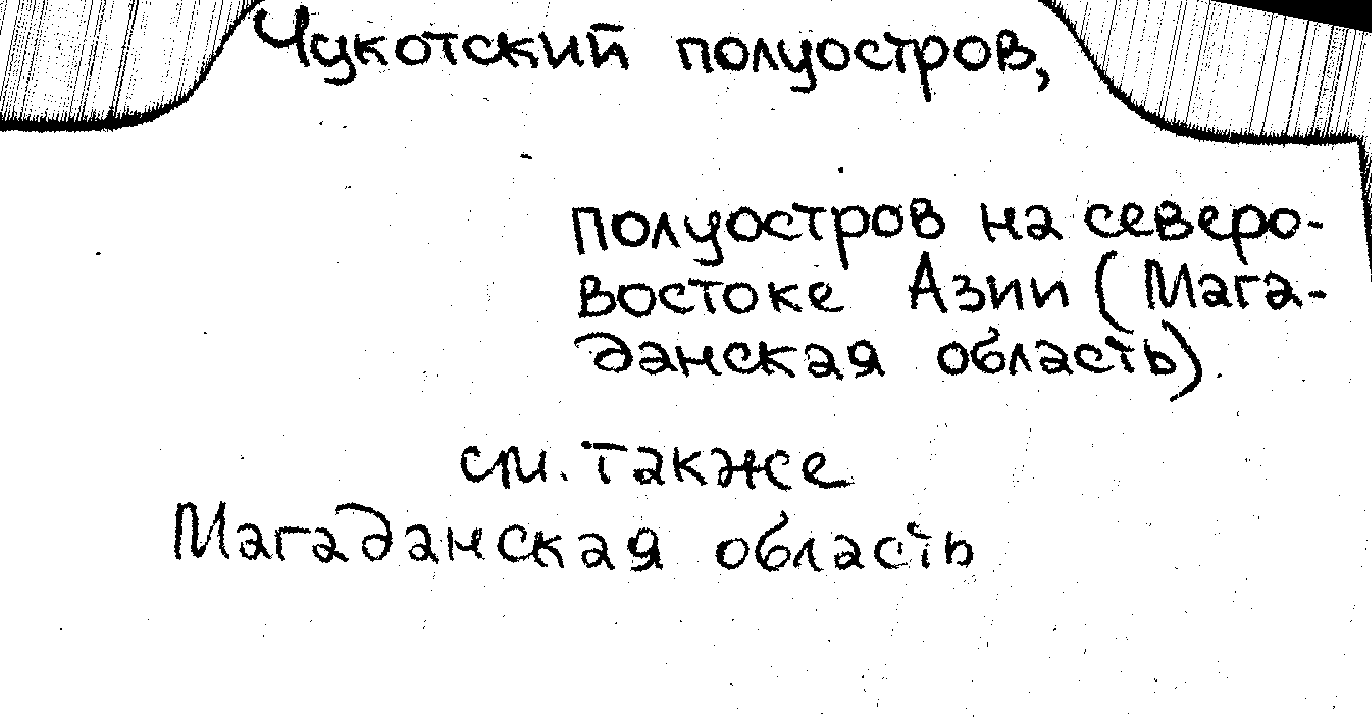 Чукотский полуостров,
полуостров на северо-
востоке Азии (Мага-
данская область).
см. также
Магаданская область